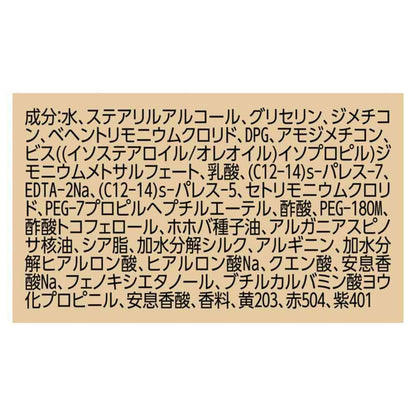 成分:水、ステアリルアルコール、グリセリン、ジメチコ
ン、ベヘントリモニウムクロリド、DPG、アモジメチコン、
ビス((イソステアロイル/オレオイル)イソプロピル)ジ
モニウムメトサルフェート、乳酸、(C12-14)s-パレス-7、
EDTA-2Na、(C12-14)s-パレス-5、セトリモニウムクロリ
ド、PEG-7プロピルヘプチルエーテル、酢酸、PEG-180M、
酢酸トコフェロール、ホホバ種子油、アルガニアスピノ
サ核油、シア脂、加水分解シルク、アルギニン、加水分
解ヒアルロン酸、ヒアルロン酸Na、クエン酸、安息香
酸Na、フェノキシエタノール、ブチルカルバミン酸ヨウ
化プロピニル、安息香酸、香料、黄203、赤504、紫401